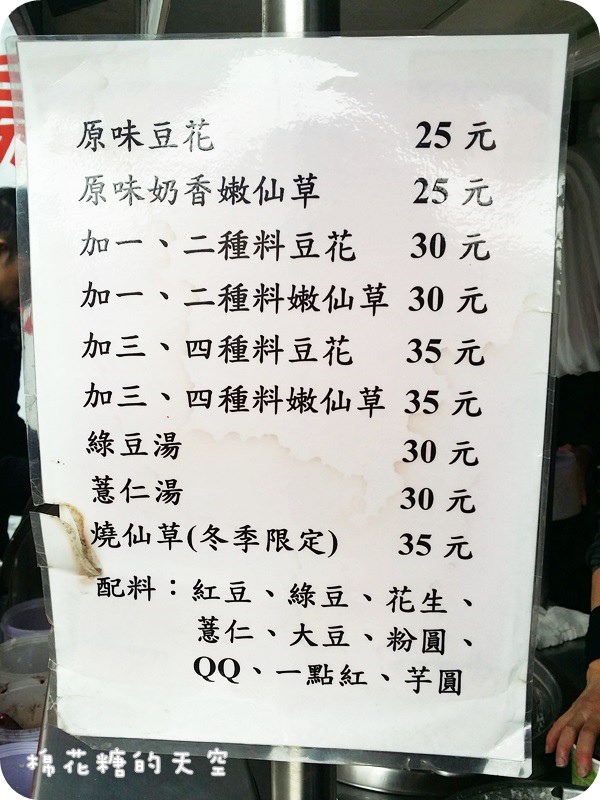 原味豆花 25 元
原味奶香嫩仙草 25 元
加一、二種料豆花 30 元
加一、二種料嫩仙草 30 元
加三、四種料豆花 35 元
加三、四種料嫩仙草 35 元
綠豆湯 30 元
薏仁湯 30 元
燒仙草(冬季限定) 35 元
配料：紅豆、綠豆、花生、
薏仁、大豆、粉圓、
QQ、一點紅、芋圓
棉花糖的天空